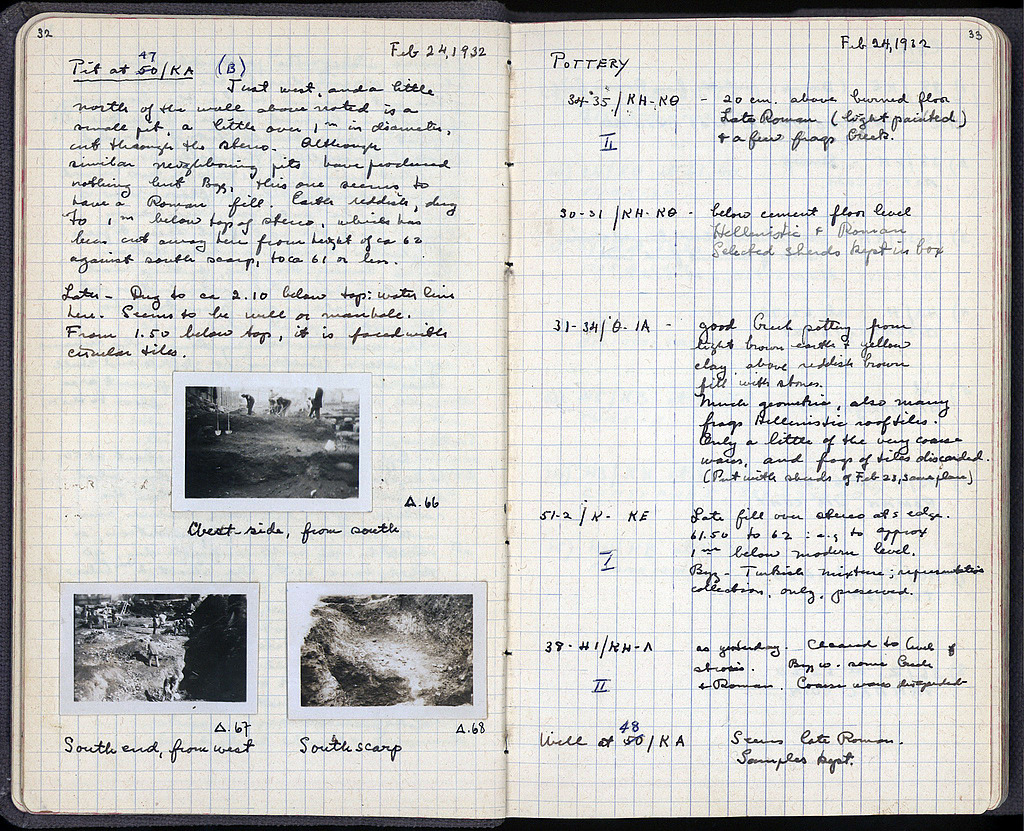 32
Feb 24, 1932
47
Pit at 50/KA (B)
Just west, and a little
north of the wall above noted is a
small pit, a little over 1 m in diameter,
cut through the stereo. Although
similar neighbouring pits have produced
nothing but Byz, this one seems to
have a Roman fill. Earth reddish, dug
to 1 m below top of stereo, which has
been cut away here from height of ca 62
against south scarp, to ca 61 or less.
Later - Dug to ca 2.10 below top: water line
here. Seems to be well or manhole.
From 1.50 below top, it is faced with
circular tiles.
Δ.66
West side, from south
Δ.67
South end, from west
Δ.68
South scarp
33
Feb 24, 1932
POTTERY
34-35/KH-KΘ - 20 cm. above burned floor
Late Roman (light painted)
II + a few frags Greek.
30-31/KH-KΘ - below cement floor level
Hellenistic + Roman
Selected sherds kept in box
31-34/Θ-IA - good Greek pottery from
light brown earth + yellow
clay above reddish brown
fill with stones.
Much geometric, also many
frags Hellenistic rooftiles.
Only a little of the very coarse
wares, and frags of tiles discarded.
(Put with sherds of Feb 23, same place)
51-2/K-KE Late fill over stereo at s edge.
61.50 to 62 : e.g to approx
I 1 m below modern level.
Byz - Turkish mixture; representative
collection, only, preserved.
38-41/KH-Λ as yesterday. Cleared to level of
strosis. Byz w. some Greek
II + Roman. Coarse wares
48
Well at 50/KA Seems late Roman.
Samples kept.